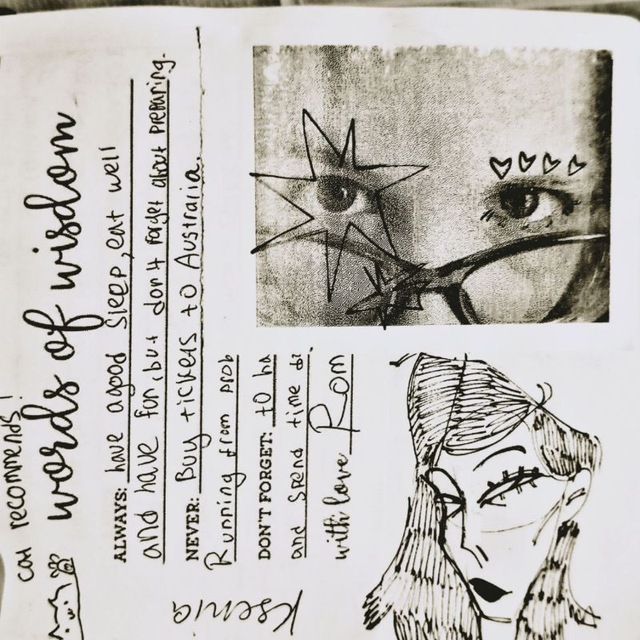 cat recommends!
words of wisdom
ALWAYS: have a good sleep, eat well
and have fun, but don't forget about preparing.
NEVER: Buy tickets to Australia.
Running from prob
DON'T FORGET: to ha
and spend time
with love Rom
Ksenia